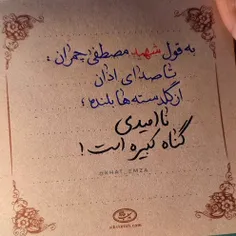 به قول شهید مصطفی چمران :
تا صدای اذان
از گلدسته ها بلنده ؛
ناامیدی
گناه کبیره است !
KHAT_EMZA